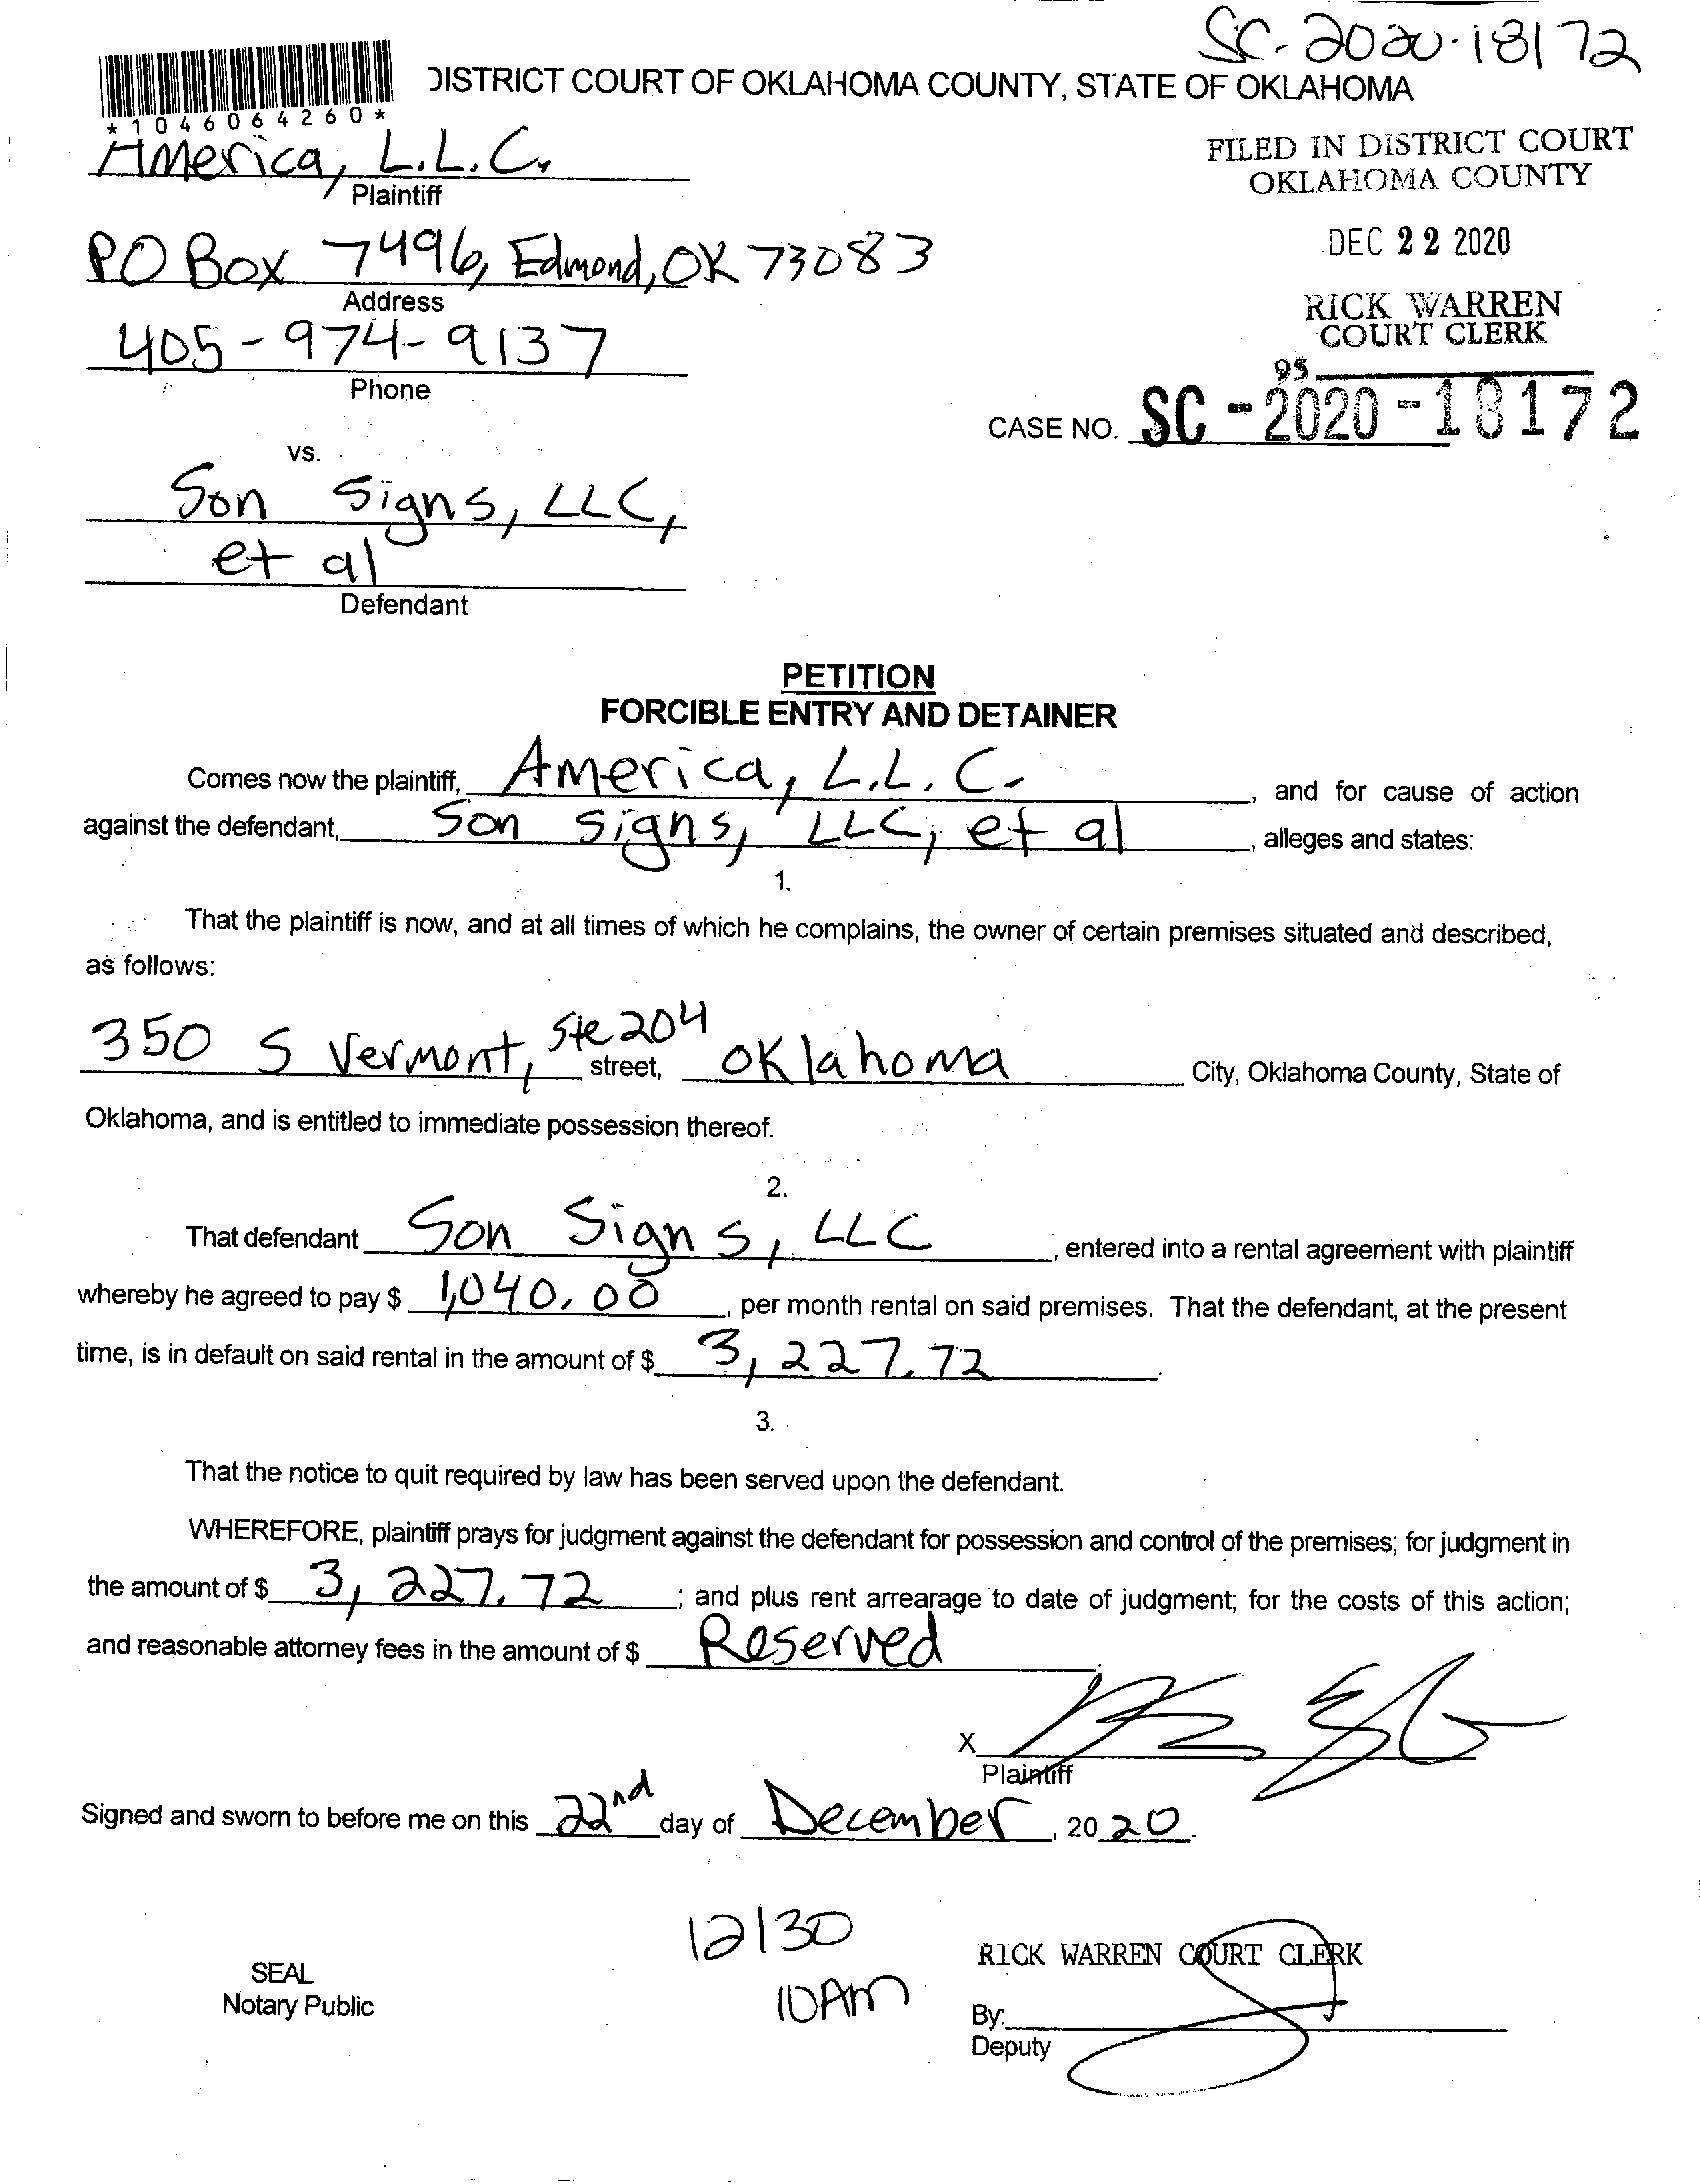 SC-2020-18172
DISTRICT COURT OF OKLAHOMA COUNTY, STATE OF OKLAHOMA
*1046064260*
America, L.L.C.
Plaintiff
FILED IN DISTRICT COURT
OKLAHOMA COUNTY
PO Box 7496, Edmond, OK 73083
Address
DEC 22 2020
405-974-9137
Phone
RICK WARREN
COURT CLERK
95
CASE NO. SC-2020-18172
vs.
Son Signs, LLC,
et al
Defendant
PETITION
FORCIBLE ENTRY AND DETAINER
Comes now the plaintiff, America, L.L.C. , and for cause of action
against the defendant, Son Signs, LLC, et al , alleges and states:
1.
That the plaintiff is now, and at all times of which he complains, the owner of certain premises situated and described,
as follows:
350 S Vermont, Ste 204 street, Oklahoma City, Oklahoma County, State of
Oklahoma, and is entitled to immediate possession thereof.
2.
That defendant Son Signs, LLC , entered into a rental agreement with plaintiff
whereby he agreed to pay $ 1,040.00 , per month rental on said premises. That the defendant, at the present
time, is in default on said rental in the amount of $ 3,227.72 .
3.
That the notice to quit required by law has been served upon the defendant.
WHEREFORE, plaintiff prays for judgment against the defendant for possession and control of the premises; for judgment in
the amount of $ 3,227.72 ; and plus rent arrearage to date of judgment; for the costs of this action;
and reasonable attorney fees in the amount of $ Reserved
X
Plaintiff
Signed and sworn to before me on this 22nd day of December , 20 20 .
12/30
10AM
SEAL
Notary Public
RICK WARREN COURT CLERK
By:
Deputy